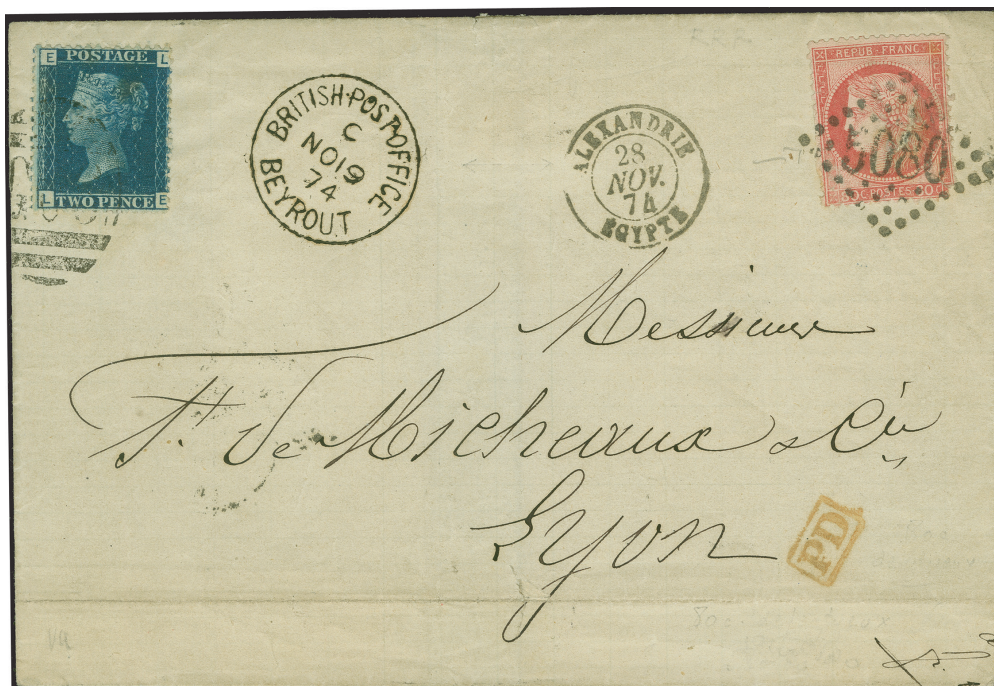 E POSTAGE L
L TWO PENCE E
BRITISH POST OFFICE
C
NO 19
74
BEYROUT
ALEXANDRIE
28
NOV.
74
EGYPTE
REPUB. FRANC.
80C. POSTES 80C.
5080
Messieurs
F. De Micheaux & Cie
Lyon
PD